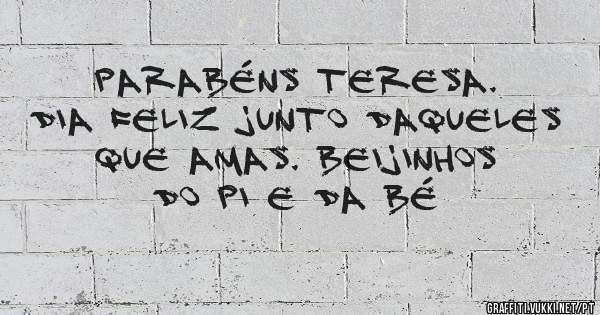 PARABÉNS TERESA.
DIA FELIZ JUNTO DAQUELES
QUE AMAS. BEIJINHOS
DO PI E DA BÉ
GRAFFITI.VUKKI.NET/PT